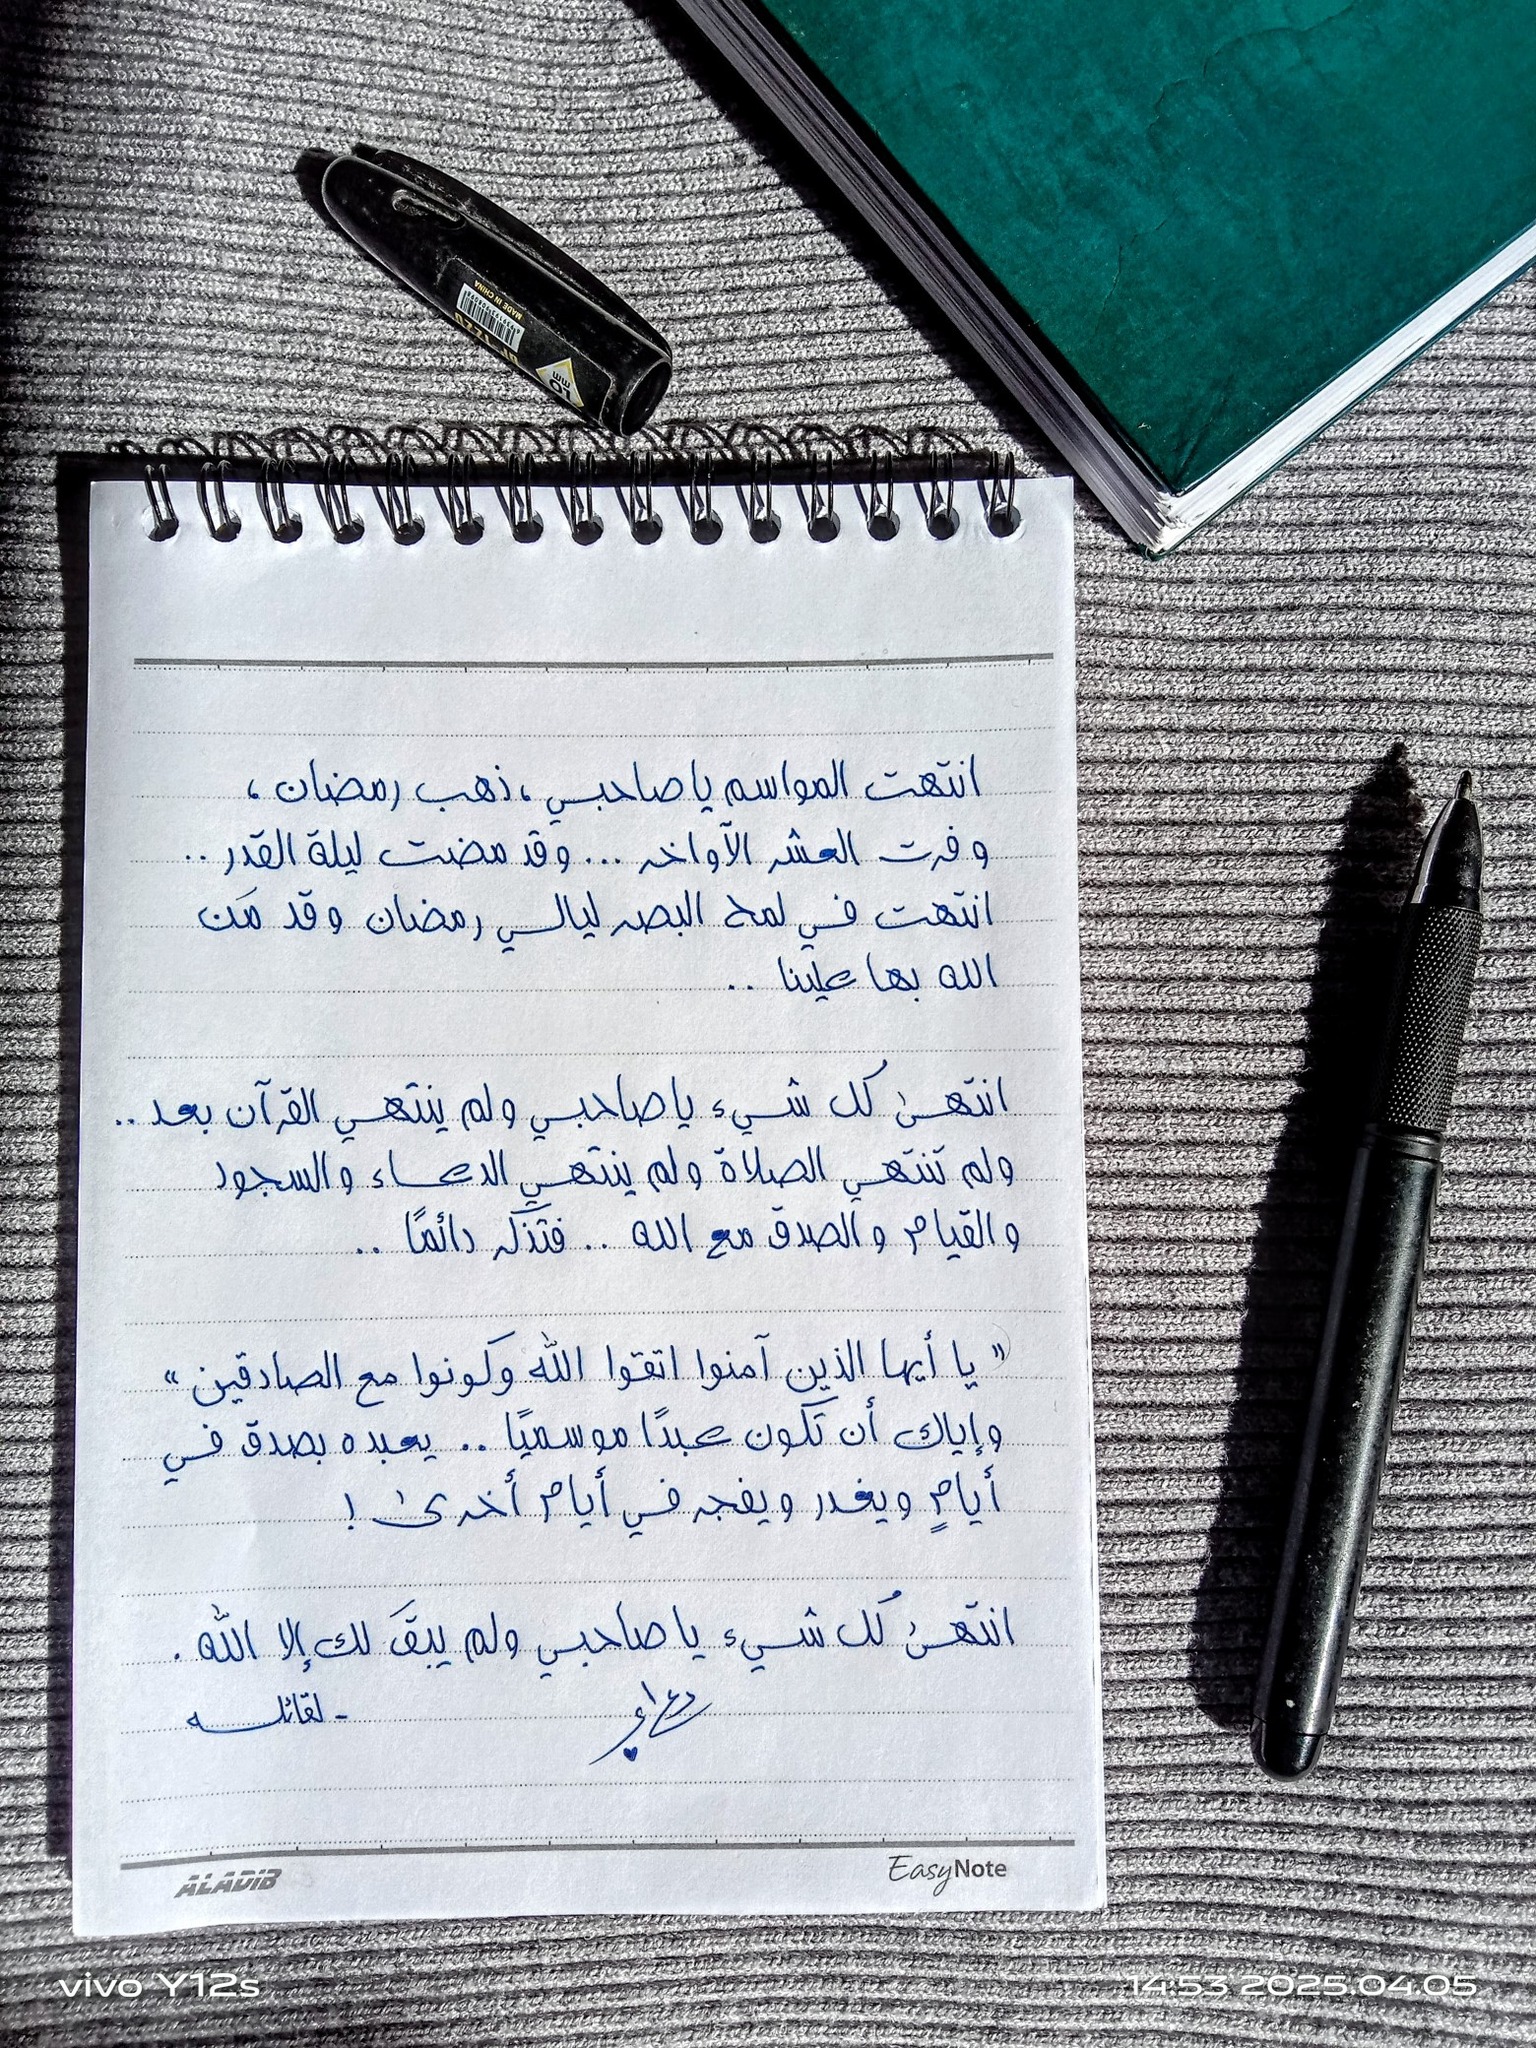 MADE IN CHINA
1.0
mm
انتهت المواسم يا صاحبي ، ذهب رمضان ،
وفرت العشر الآواخر ... وقد مضت ليلة القدر ..
انتهت في لمح البصر ليالي رمضان وقد مَن
الله بها علينا ..
انتهىٰ كُل شيء يا صاحبي ولم ينتهي القرآن بعد ..
ولم تنتهي الصلاة ولم ينتهي الدعاء والسجود
والقيام والصدق مع الله .. فتذكر دائمًا ..
" يا أيها الذين آمنوا اتقوا اللّٰه وكونوا مع الصادقين "
وإياك أن تكون عبدًا موسميًا .. يعبده بصدق في
أيامٍ ويغدر ويفجر في أيام أخرىٰ !
انتهىٰ كُل شيء يا صاحبي ولم يبقَ لك إلا اللّٰه .
- لقائله
ALADIB
EasyNote
vivo Y12s
14:53 2025.04.05